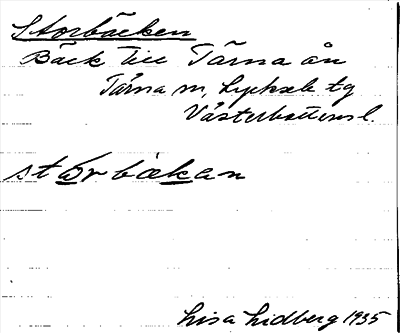 Storbäcken
Bäck till Tärna ån
Tärna sn, Lycksele tg
Västerbottens l.
stōrbäkan
Lisa Lidberg 1935